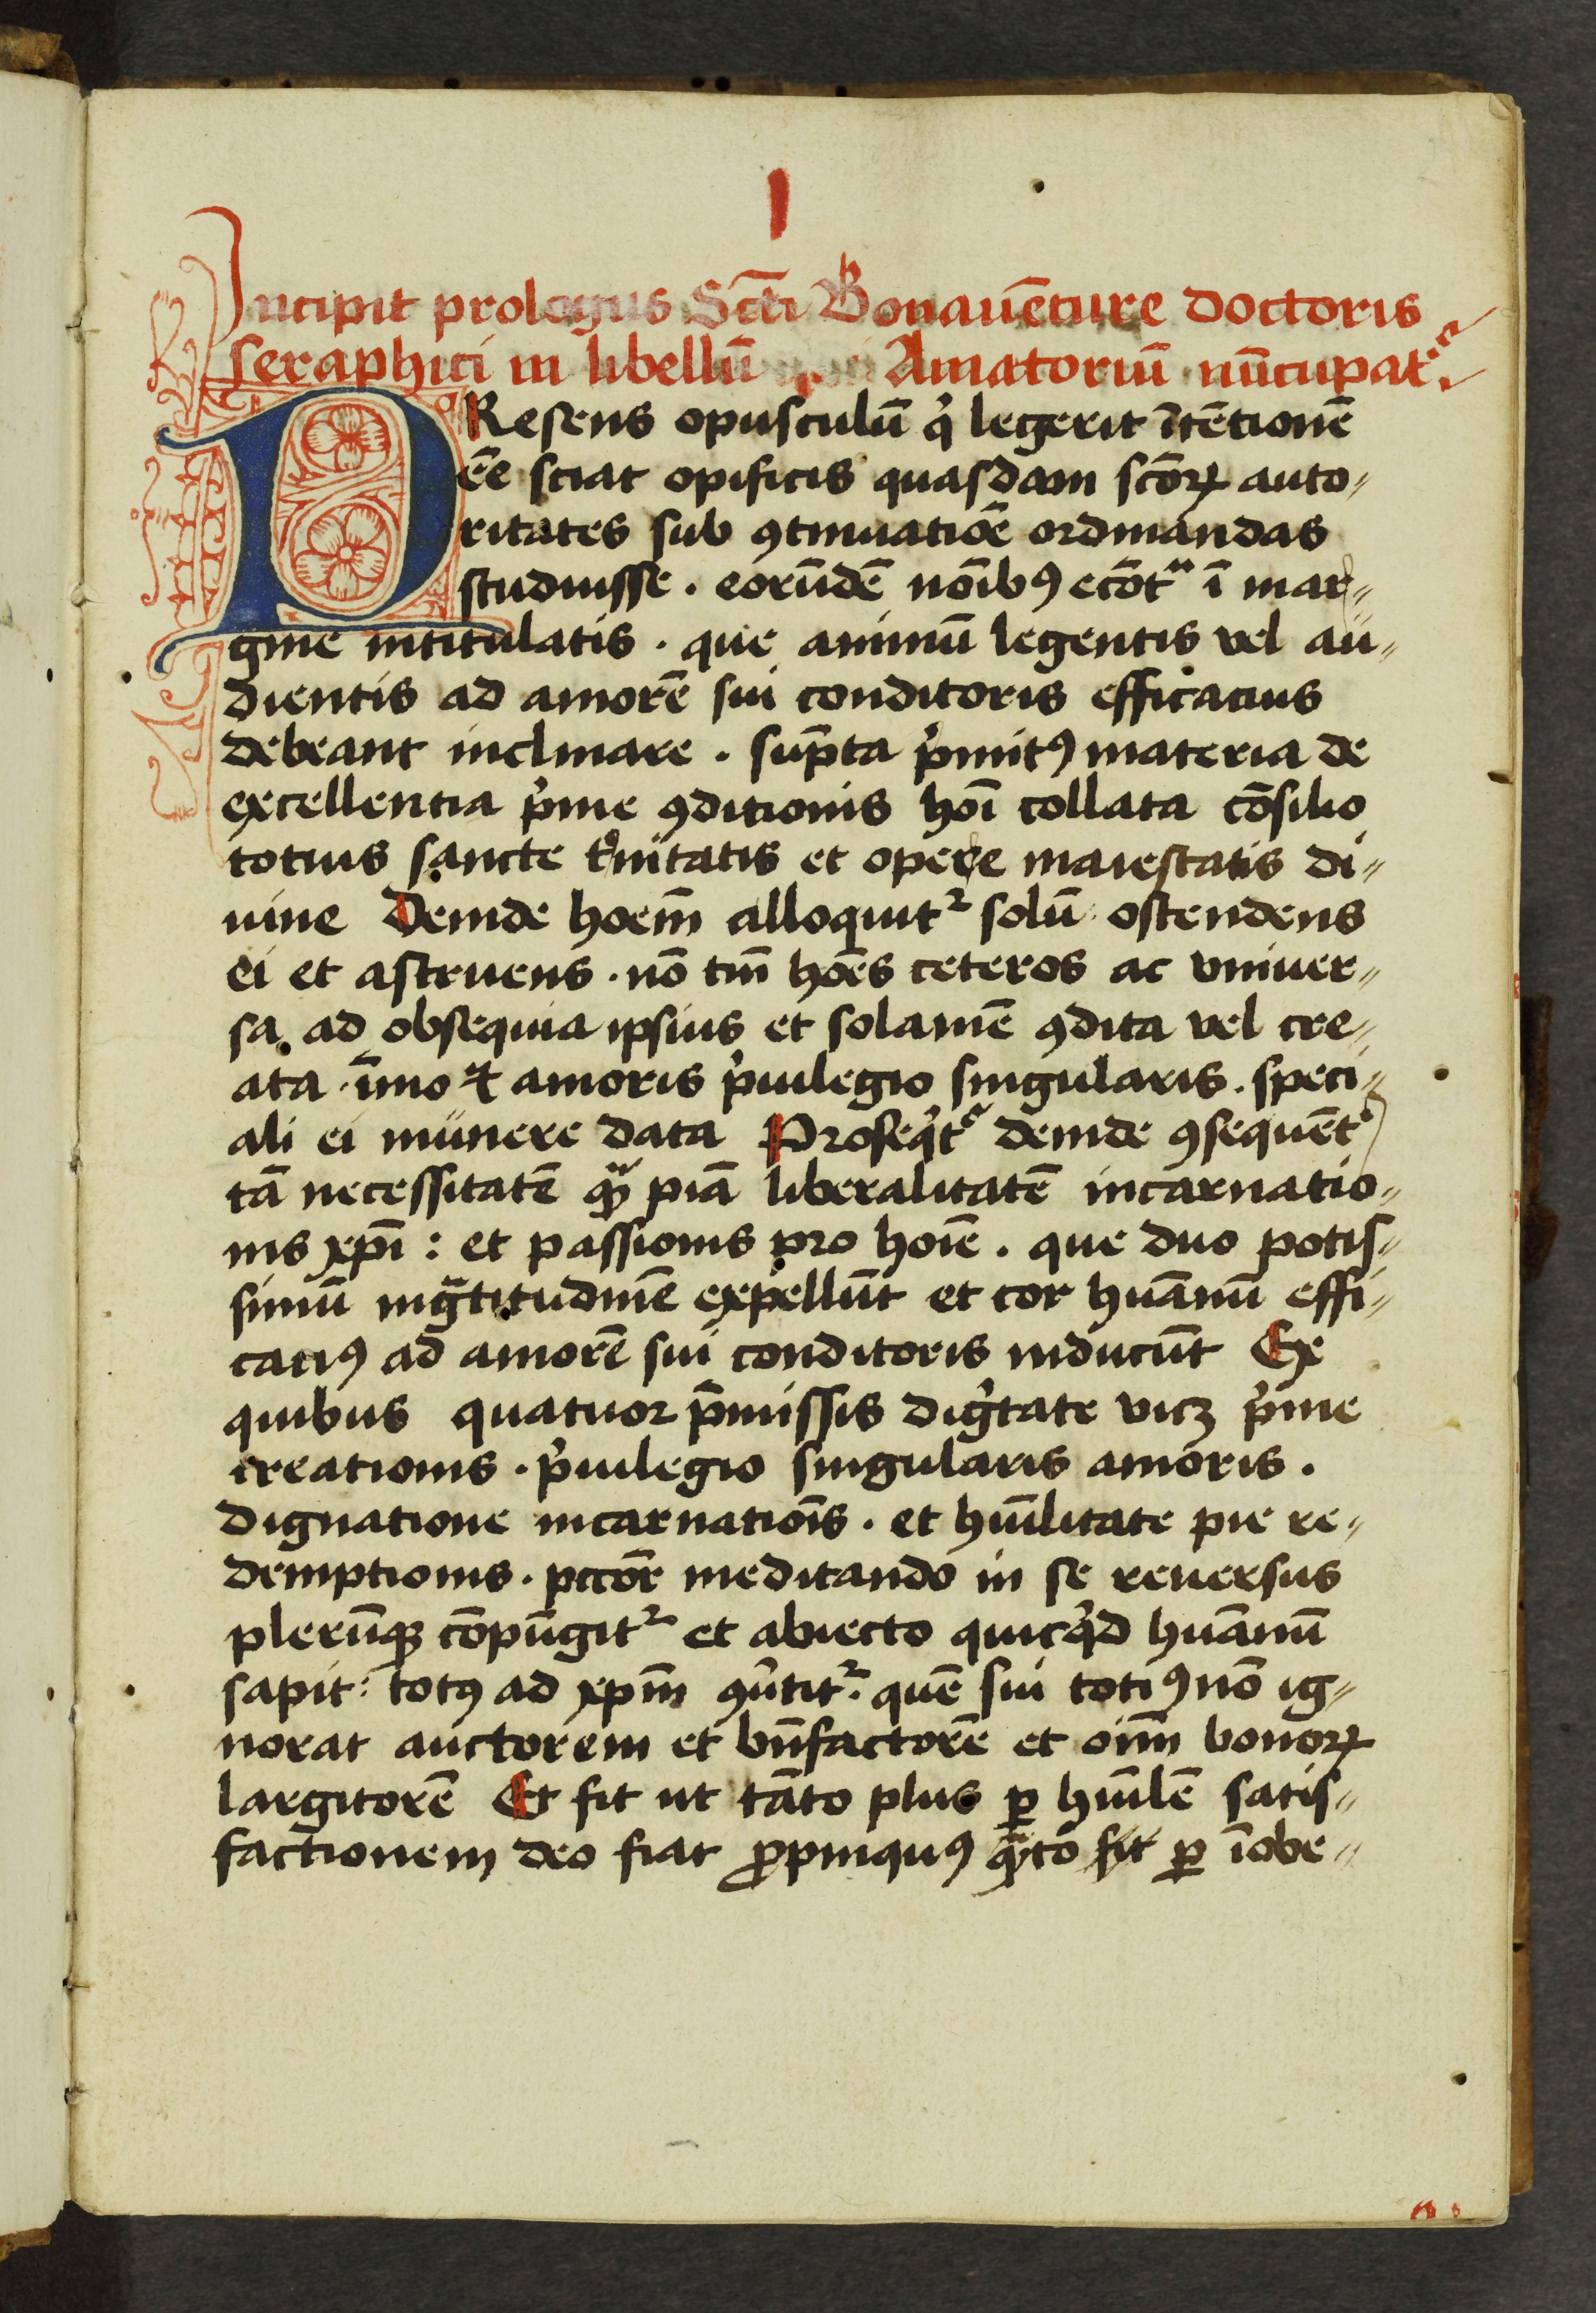 I
Incipit prologus Sctī Bonauēture doctoris
seraphici in libellū Amatoriū nūcupatꝰ.
PResens opusculū qͥ legerit ītētionē
ēē sciat opificis quasdam scōꝝ auto„
ritates sub ꝯtinuatiōe ordinandas
studuisse . eorūdē noībꝰ ecōtᷓ ī mar„
gine intitulatis . que animū legentis vel au„
dientis ad amorē sui conditoris efficacius
debeant inclinare . sūpta pͥmitꝰ materia de
excellentia pͥme ꝯditionis hoī collata cōsilio
totius sancte tͥnitatis et opere maiestatis di„
uine Deinde hoem̄ alloquitᷣ solū ostendens
ei et astruens . nō tm̄ hoēs ceteros ac vniuer„
sa ad obsequia ipsius et solamē ꝯdita vel cre„
ata . īmo ⁊ amoris pͥuilegio singularis . speci„
ali ei munere data Proseqͥtᷣ deinde ꝯsequētͥ
tā necessitatē qᷓꝫ piā liberalitatē incarnatio„
nis xp̄ī : et passionis pro hoīe . que duo potis„
simū ingᷓtitudinē expellūt et cor huānū effi„
catiꝰ ad amorē sui conditoris inducūt Ex
quibus quatuor p̄missis digͥtate vicꝫ pͥme
creationis . pͥuilegio singularis amoris .
dignatione incarnatiōis . et huīlitate pie re„
demptionis . pctōr meditando in se reuersus
plerūqꝫ cōpūgitᷣ et abiecto quicqͥd huānū
sapit : totꝰ ad xpm̄ ꝯūtitᷣ . quē sui totiꝰ nō ig„
norat auctorem et bn̄factorē et oīm̄ bonoꝝ
largitorē Et fit ut tāto plus ꝑ huīlē satis„
factionem deo fiat ꝓpinquꝰ qᷓto fit ꝑ īobe„